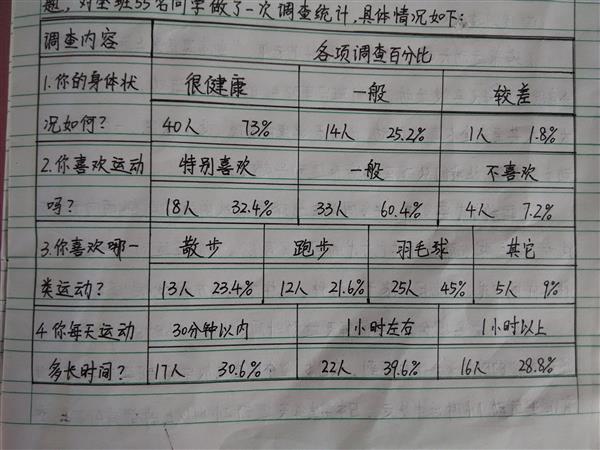 题,对全班55名同学做了一次调查统计,具体情况如下:
调查内容 各项调查百分比
1.你的身体状 很健康 一般 较差
况如何? 40人 73% 14人 25.2% 1人 1.8%
2.你喜欢运动 特别喜欢 一般 不喜欢
吗? 18人 32.4% 33人 60.4% 4人 7.2%
3.你喜欢哪一 散步 跑步 羽毛球 其它
类运动? 13人 23.4% 12人 21.6% 25人 45% 5人 9%
4.你每天运动 30分钟以内 1小时左右 1小时以上
多长时间? 17人 30.6% 22人 39.6% 16人 28.8%